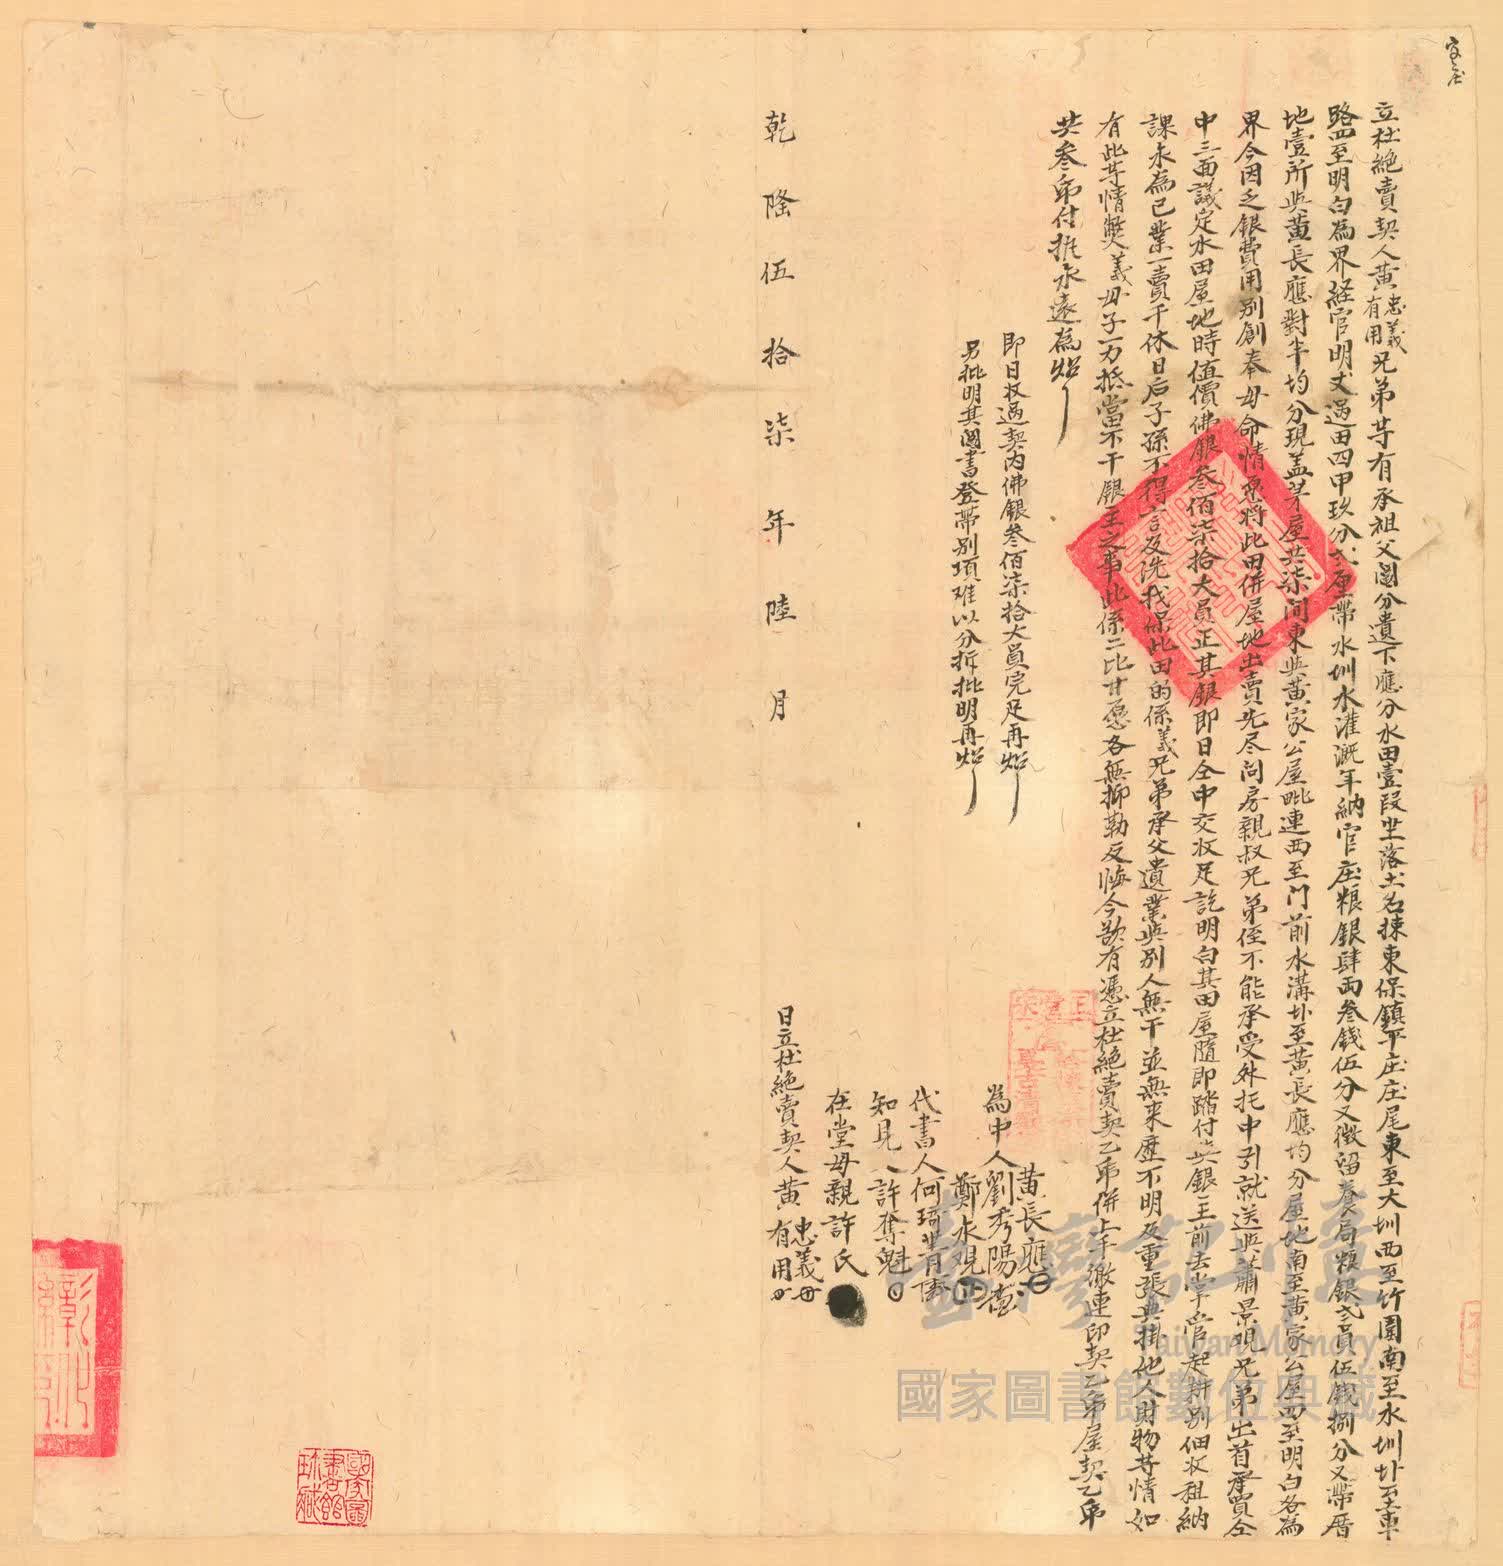 立杜絕賣契人黃忠義有用兄弟等有承祖父鬮分遺下應分水田壹段坐落土名揀東保鎮平庄庄尾東至大圳西至竹圍南至水圳北至車
路四至明白為界経官明丈過田四甲玖分弍厘帶水圳水灌溉年納官庄粮銀肆両叁錢伍分又徵留養局粮銀弍員伍錢捌分又帶厝
地壹所與黃長應對半均分現蓋茅屋共柒间東與黃家公屋毗連西至门前水溝北至黃長應均分屋地南至黃家公屋四至明白各為
界今因乏銀費用別創奉母命情愿將此田併屋地出賣先尽问房親叔兄弟侄不能承受外托中引就送與蕭景观兄弟出首承買仝
中三面議定水田屋地時值價佛銀叁佰柒拾大員正其銀即日仝中交收足訖明白其田屋隨即踏付與銀主前去掌管起耕別佃收租納
課永為己業一賣千休日后子孫不得言及洗找保此田的係義兄弟承父遺業與別人無干並無来歷不明及重張典掛他人財物等情如
有此等情弊義母子一力抵當不干銀主之事此係二比甘愿各無抑勒反悔今欲有憑立杜絕賣契乙帋併上手繳連印契乙帋屋契乙帋
共叁帋付执永遠為炤
即日收過契内佛銀叁佰柒拾大員完足再炤
另批明其鬮書登帶別項难以分拆批明再炤
為中人
黃長應
劉秀陽
鄭永观
代書人何琦菁
知見人許奪魁
在堂母親許氏
乾隆伍拾柒年陸月
日立杜絕賣契人黃忠義有用
臺灣記憶
Taiwan Memory
國家圖書館數位典藏
國家圖書館珍藏